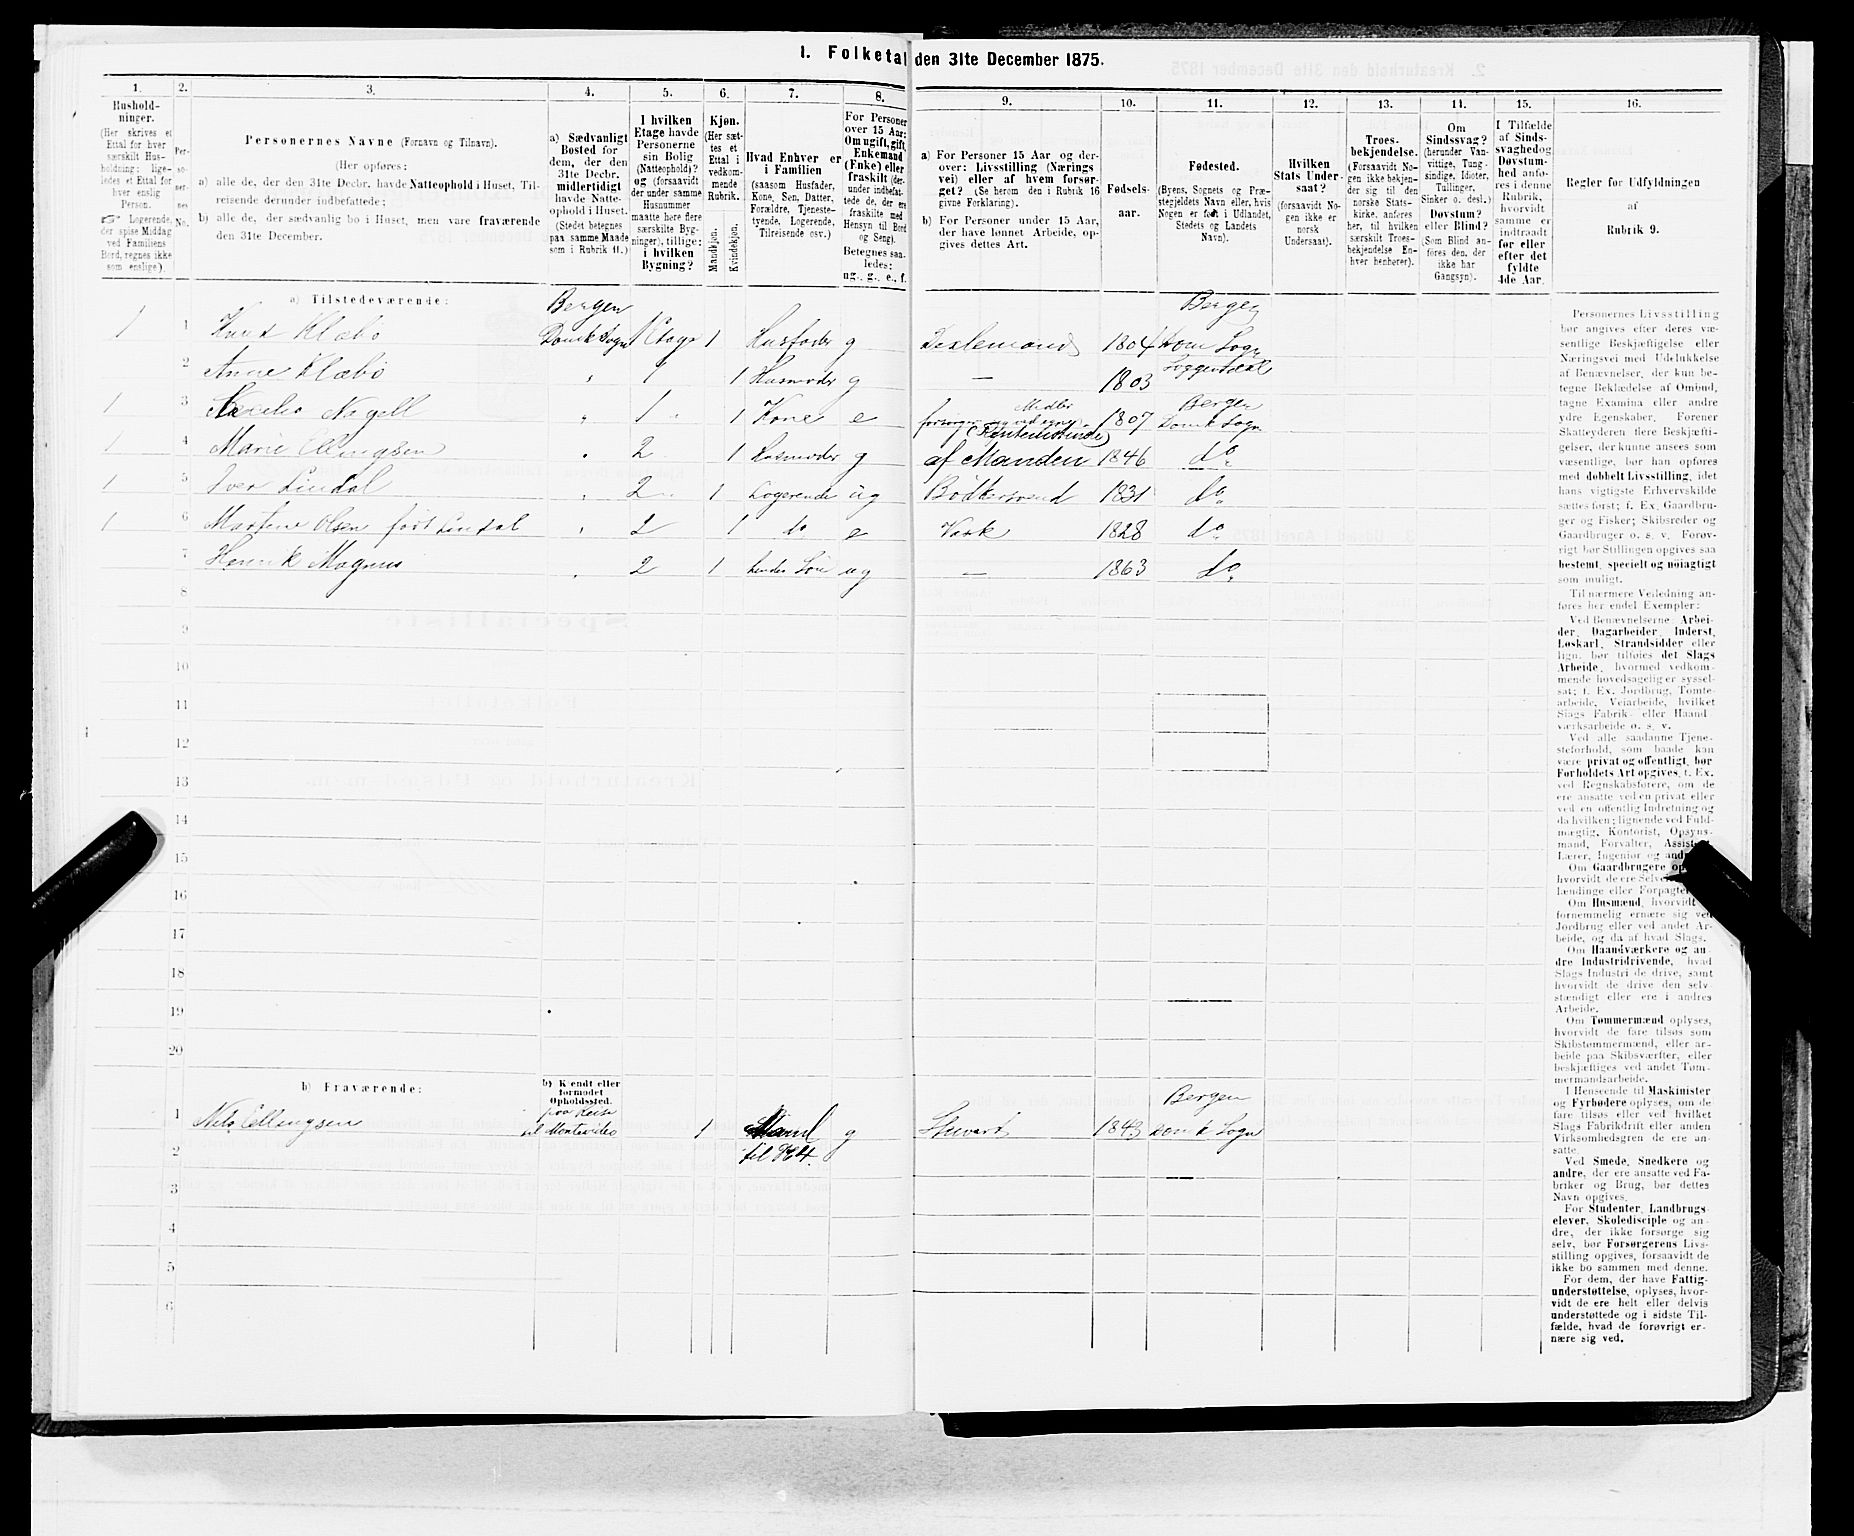 1. Folketal den 31te December 1875.
1.
2.
3.
4.
5.
6.
7.
8.
9.
10.
11.
12.
13.
14.
15.
16.
Hushold-
ninger.
(Her skrives et
Ettal for hver
særskilt Hus-
holdning; lige-
ledes et Ettal for
hver enslig
Person.
☞ Logerende,
der spise Middag
ved Familiens
Bord, regnes ikke
som enslige).
Per-
so-
ner-
nes
No.
Personernes Navne (Fornavn og Tilnavn).
(Her opføres:
a) alle de, der den 31te Decbr. havde Natteophold i Huset, Til-
reisende derunder indbefattede;
b) alle de, der sædvanlig bo i Huset, men vare fraværende
den 31te December.
a) Sædvanligt
Bosted for
dem, der den
31te Decbr.
midlertidigt
havde Natte-
ophold i Huset.
(Stedet betegnes
paa samme Maade
som i Rubrik 11.)
I hvilken
Etage havde
Personerne
sin Bolig
(Natteophold)?
og (forsaavidt
der under samme
Husnummer
maatte høre flere
særskilte Byg-
ninger), tillige:
i hvilken
Bygning?
Kjøn.
(Her sæt-
tes et
Ettal i
vedkom-
mende
Rubrik.
Mandkjøn.
Kvindekjøn.
Hvad Enhver er
i Familien
(saasom Husfader,
Kone, Søn, Datter,
Forældre, Tjeneste-
tyende, Logerende,
Tilreisende osv.).
For Personer
over 15 Aar:
Om ugift, gift,
Enkemand
(Enke) eller
fraskilt (der-
under indbefat-
tede de, der ere
fraskilte med
Hensyn til Bord
og Seng).
Betegnes saa-
ledes:
ug., g., e., f.
a) For Personer 15 Aar og der-
over: Livsstilling (Nærings
vei) eller af hvem forsør-
get? (Se herom den i Rubrik 16
givne Forklaring).
b) For Personer under 15 Aar,
der have lønnet Arbeide, op-
gives dettes Art.
Fødsels-
aar.
Fødested.
(Byens, Sognets og Præ-
stegjeldets Navn eller, hvis
Nogen er født i Udlandet,
Stedets og Landets
Navn).
Hvilken
Stats Under-
saat?
(forsaavidt No-
gen ikke er
norsk
Undersaat).
Troes-
bekjendelse.
(Forsaavidt No-
gen ikke bekjen-
der sig til den
norske Stats-
kirke, anføres
her, til hvilken
særskilt Troes-
bekjendelse En-
hver henhører).
Om
Sindssvag?
(herunder Van-
vittige, Tung-
sindige, Idioter,
Tullinger,
Sinker o. desl.)
Døvstum?
eller Blind?
(Som Blind an-
føres den, der
ikke har
Gangsyn).
I Tilfælde
af Sinds-
svaghed og
Døvstum-
hed anfø-
res i denne
Rubrik,
hvorvidt
samme er
indtraadt
før eller
efter det
fyldte
4de Aar.
Regler for Udfyldningen
af
Rubrik 9.
a) Tilstedeværende:
Bergen Bergen
1 1 Knud Klæbo Domk Sogn 1 Etage 1 Husfader g 1804 Dom Sogn
2 Anne Klæbo " 1 1 Husmoder g — 1803
1 3 Nagell " 1 " 1 Kone e Midler 1807 Bergen Domk Sogn
(Rentenistinde)
1 4 Marie Ellingsen " 2 1 Husmoder g af Manden 1846 do
1 5 Iver Lindal " 2 " 1 Logerende ug Bødkersvend 1831 do
1 6 Martine Olsen født Lindal " 2 1 do e Vask 1828 do
7 Henrik Magnus " 2 1 hendes Søn ug — 1863 do
8
9
10
11
12
13
14
15
16
17
18
19
20
b) Fraværende:
b) Kjendt eller
formodet
Opholdssted.
1 Nils Ellingsen paa Reise til Montevideo 1 Mand til No 4. g Stuvert 1843 Bergen Domk Sogn
2
3
4
5
6
Personernes Livsstilling
bør angives efter deres væ-
sentlige Beskjæftigelse eller
Næringsvei med Udelukkelse
af Benævnelser, der kun be-
tegne Beklædelse af Ombud,
tagne Examina eller andre
ydre Egenskaber. Forener
Skatteyderen flere Beskjæfti-
gelser, der kunne ansees som
væsentlige, bør han opføres
med dobbelt Livsstilling, idet
hans vigtigste Erhvervskilde
sættes først; f. Ex. Gaardbru-
ger og Fisker; Skibsreder og
Gaardbruger o. s. v. Forøv-
rigt bør Stillingen opgives saa
bestemt, specielt og nøiagtigt
som muligt.
Til nærmere Veiledning an-
føres her endel Exempler:
Ved Benævnelserne: Arbei-
der, Dagarbeider, Inderst,
Løskarl, Strandsidder eller
lign. bør tilføies det Slags
Arbeide, hvormed vedkom-
mende hovedsagelig er syssel-
sat; f. Ex. Jordbrug, Tomte-
arbeide, Veiarbeide, hvilket
Slags Fabrik- eller Haand-
værksarbeide o. s. v.
Ved alle saadanne Tjene-
steforhold, som baade kan
være privat og offentligt, bør
Forholdets Art opgives, f. Ex.
ved Regnskabsførere, om de
ere ansatte ved en privat eller
ved en offentlig Indretning og
da hvilken; lignende ved Fuld-
mægtig, Kontorist, Opsyns-
mand, Forvalter, Assistent,
Lærer, Ingeniør og andre.
Om Gaardbrugere
hvorvidt de ere
lændinge eller Forpagtere.
Om Husmænd, hvorvidt
fornemmelig ernære sig ved
Jordbrug eller ved andet Ar-
beide, og da af hvad Slags.
Om Haandværkere og an-
dre Industridrivende, hvad
Slags Industri de drive, samt
hvorvidt de drive den selv-
stændigt eller ere i andres
Arbeide.
Om Tømmermænd oplyses,
hvorvidt de fare tilsøs som
Skibstømmermænd, eller ar-
beide paa Skibsværfter, eller
beskjæftiges ved andet Tøm-
mermandsarbeide.
I Henseende til Maskinister
og Fyrbødere oplyses, om de
fare tilsøs eller ved hvilket
Slags Fabrikdrift eller anden
Virksomhedsgren de ere an-
satte.
Ved Smede, Snedkere og
andre, der ere ansatte ved Fa-
briker og Brug, bør dettes
Navn opgives.
For Studenter, Landbrugs-
elever, Skoledisciple og an-
dre, der ikke forsørge sig
selv, bør Forsørgerens Livs-
stilling opgives, forsaavidt de
ikke bo sammen med denne.
For dem, der have Fattig-
understøttelse, oplyses, hvor-
vidt de ere helt eller delvis
understøttede og i sidste Til-
fælde, hvad de forøvrigt er-
nære sig ved.